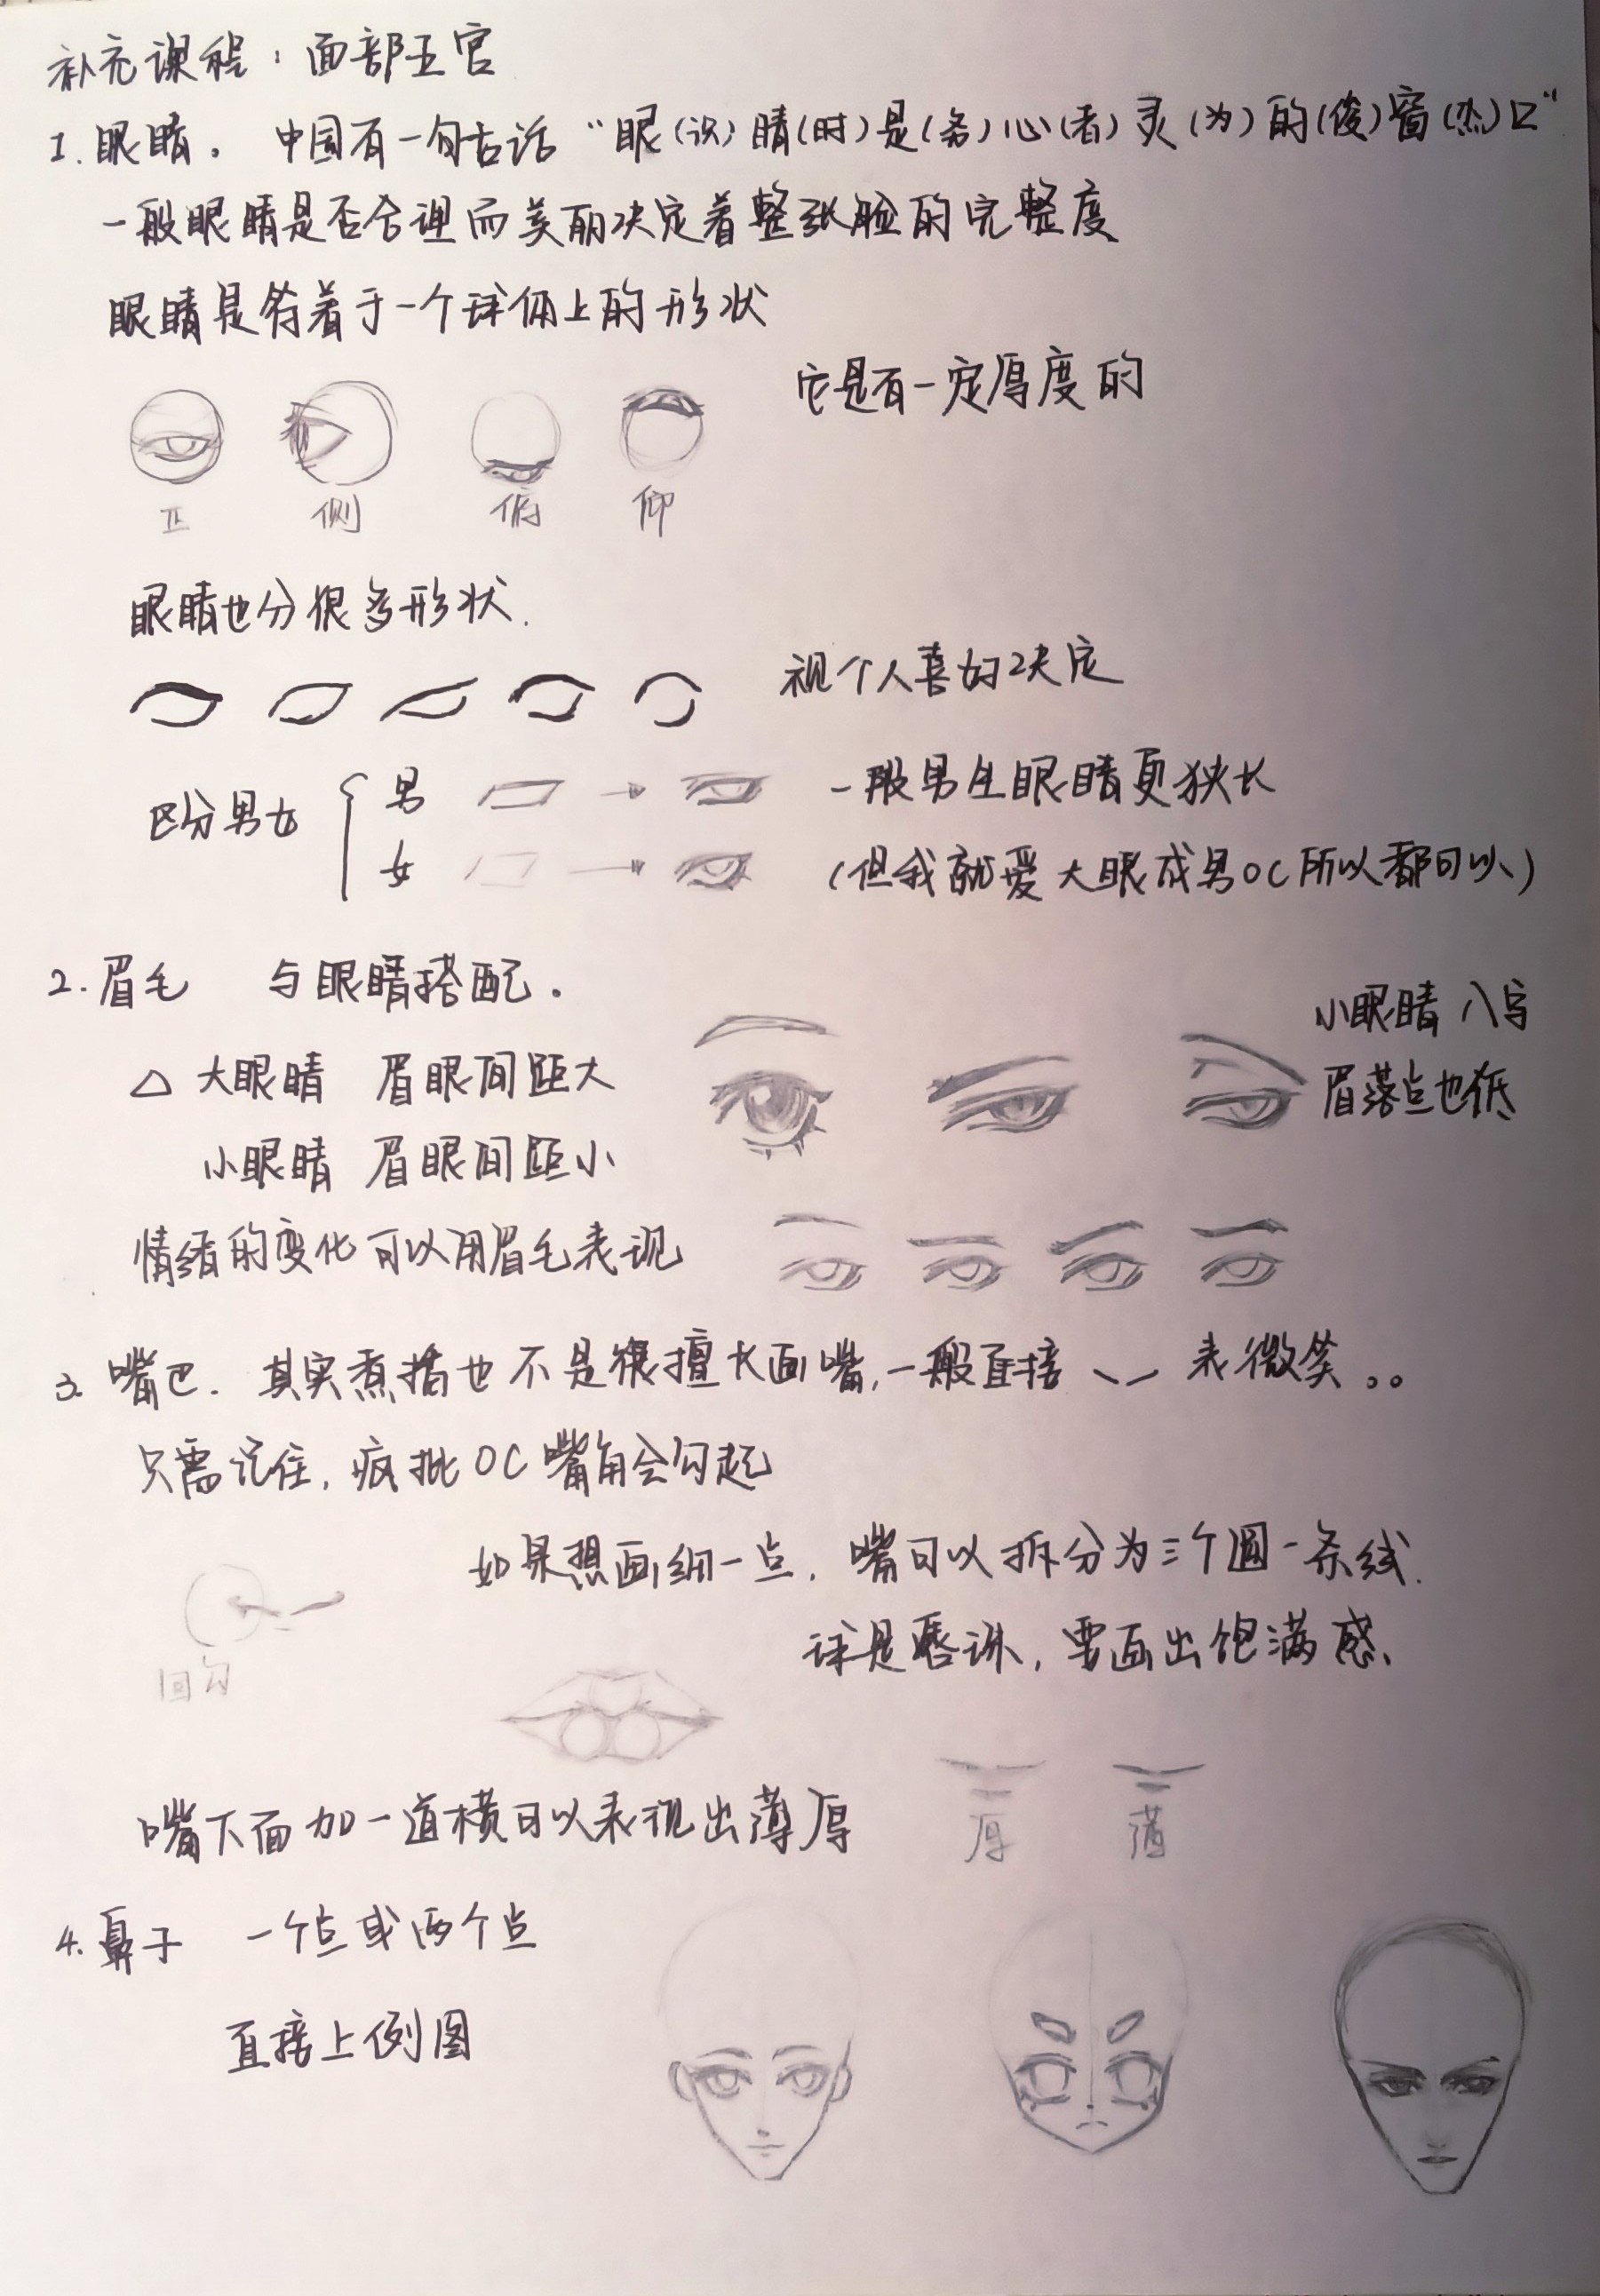 补充课程：面部五官
1. 眼睛。 中国有一句古话“眼(识)睛(时)是(务)心(者)灵(为)的(俊)窗(杰)口”
一般眼睛是否合理而美丽决定着整张脸的完整度
眼睛是符着于一个球体上的形状
它是有一定厚度的
正 侧 俯 仰
眼睛也分很多形状.
视个人喜好决定
区分男女 男 一般男生眼睛更狭长
女 (但我就爱大眼成男OC所以都可以)
2. 眉毛 与眼睛搭配.
小眼睛 八字
眉落点也低
△ 大眼睛 眉眼间距大
小眼睛 眉眼间距小
情绪的变化可以用眉毛表现
3. 嘴巴. 其实煮揺也不是很擅长画嘴,一般直接 表微笑。。
只需记住, 疯批OC嘴角会勾起
如果想画细一点, 嘴可以拆分为三个圆一条线.
球是唇珠, 要画出饱满感、
回勾
嘴下面加一道横可以表现出薄厚
厚 薄
4. 鼻子 一个点或两个点
直接上例图